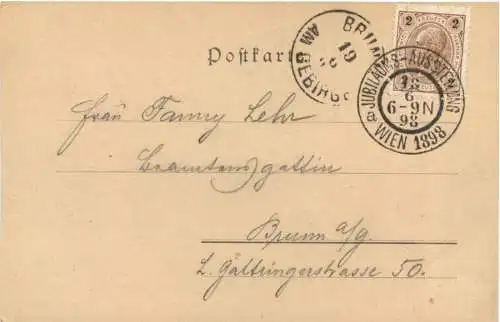 2 KREUZER 2
Postkarte
BRUNN
AM GEBIRGE
19
JUBILÄUMS-AUSSTELLUNG
18
6
6-9N
98
a WIEN 1898
Frau Fanny Lehr
Beamtensgattin
Brunn a/g.
L. Gattringerstrasse 50.